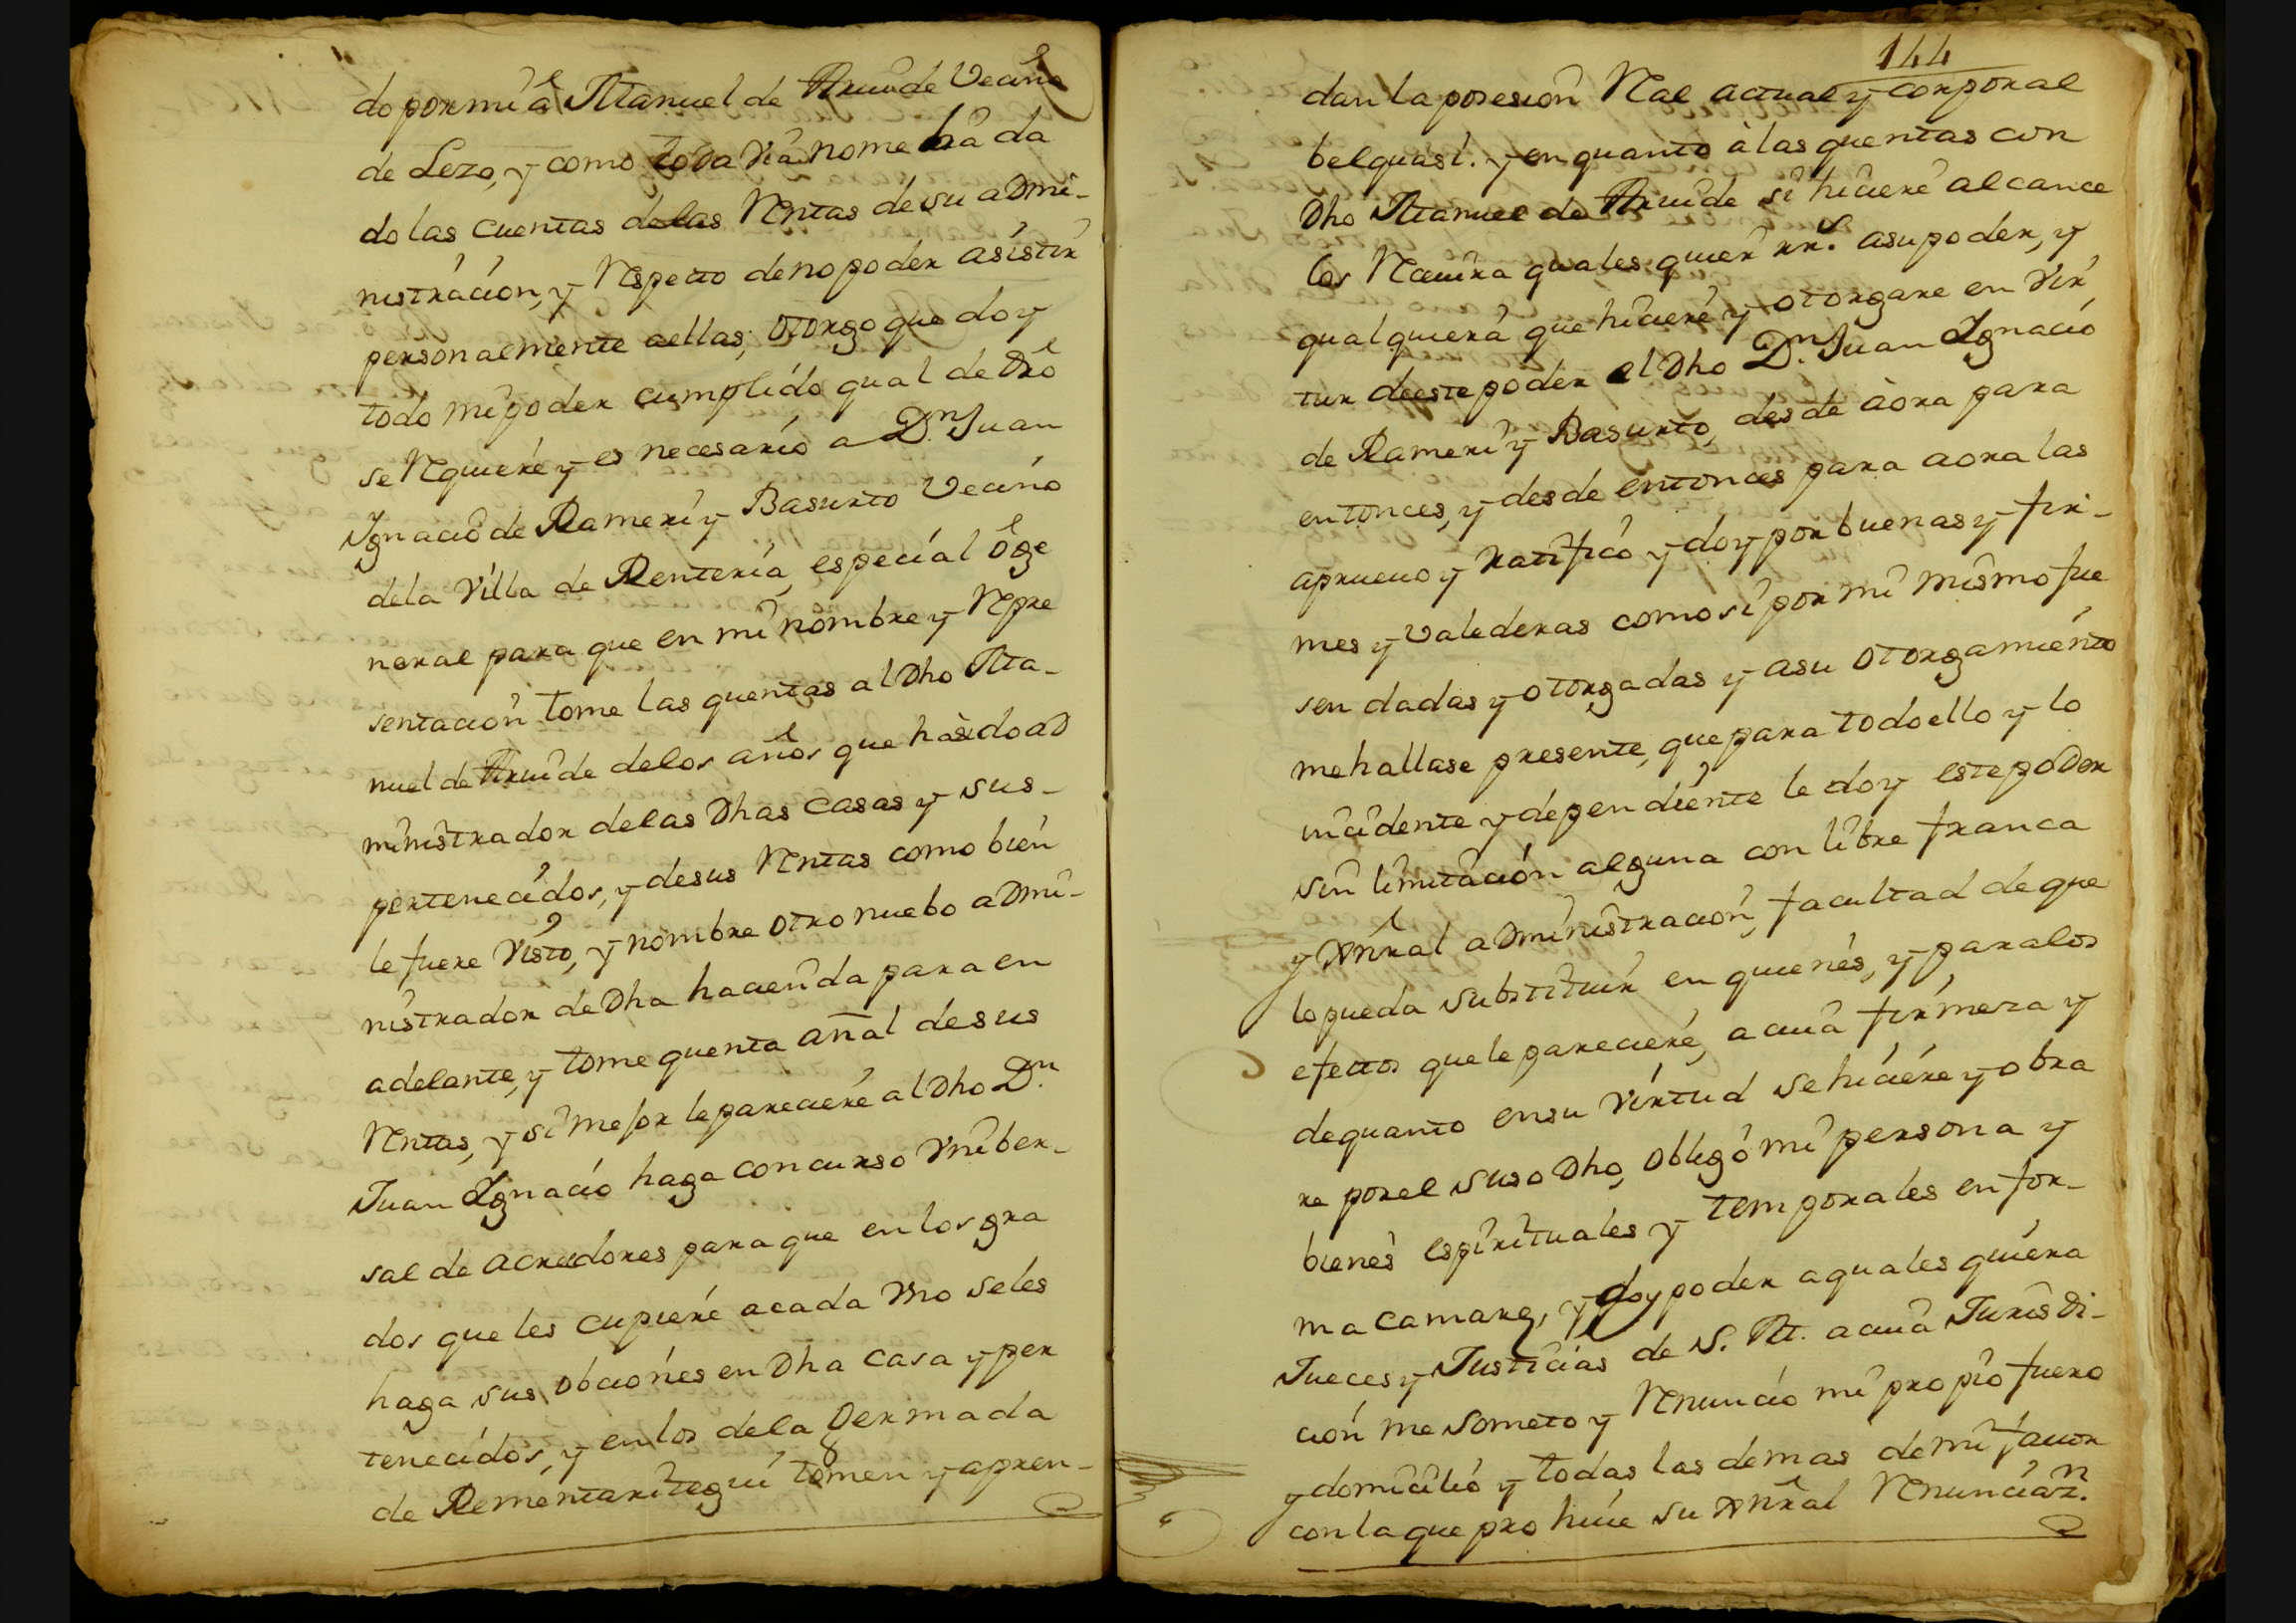 do por mi â Manuel de Arruide Vecino
de Lezo, y como toda via no me ha da
do las cuentas de las Rentas de su admi-
nistración, y Respecto de no poder asistir
personalmente a ellas; otorgo que doy
todo mi poder cumplido qual de Dro
se Requiere y es necesario a Dn. Juan
Ignacio de Rameri y Basurto Vecino
de la Villa de Renteria, especial o ge
neral para que en mi nombre y Repre
sentacion tome las quentas al Dho Ma-
nuel de Arruide de los años que ha sido ad
ministrador de las Dhas casas y sus-
pertenecidos, y de sus Rentas como bien
le fuere visto, y nombre otro nuebo admi-
nistrador de Dha hacienda para en
adelante, y tome quenta añal de sus
Rentas, y si mejor le pareciere al Dho Dn.
Juan Ignacio haga concurso vniber-
sal de acreedores para que en los gra
dos que les cupiere a cada vno se les
haga sus obciones en Dha casa y per
tenecidos, y en los de la Dermada
de Rementaritegui tomen y apren-
144
dan la posesion Ral actual y corporal
bel quasi. y en quanto à las quentas con
Dho Manuel de Arruide si hiciere alcance
los Reciuira quales quier rrs. a su poder, y
qualquiera que hiciere y otorgare en vir
tur de este poder el Dho Dn. Juan Ignacio
de Rameri y Basurto, desde àora para
entonces, y desde entonces para aora las
aprueuo y ratifico y doy por buenas y fir-
mes y valederas como si por mi mismo fue
sen dadas y otorgadas y a su otorgamiento
me hallase presente, que para todo ello y lo
incidente y dependiente le doy este poder
sin limitación alguna con libre franca
y Gnral administracion, facultad de que
lo pueda substituir en quienes, y para los
efectos que le pareciere, a cuia firmeza y
de quanto en su virtud se hiciere y obra
re por el suso Dho, obligo mi persona y
bienes espirituales y temporales en for-
ma camare, y doy poder a quales quiera
Jueces y Justicias de S. M. a cuia Jurisdi-
ción me someto y Renuncio mi propio fuero
y domicilio y todas las demas de mi fauor
con la que prohiue su Gnral Renunciazn.